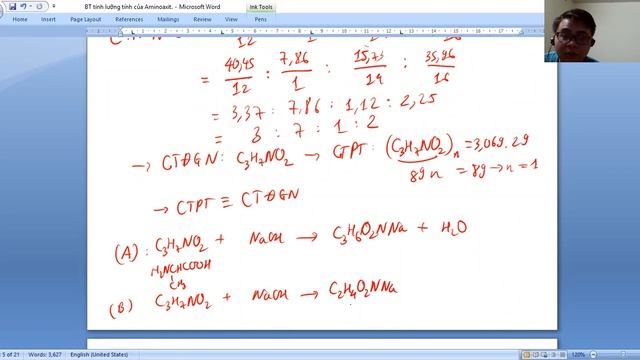 BT tính lưỡng tính của Aminoaxit. - Microsoft Word
Ink Tools
12 1 14 16
= 40,45/12 : 7,86/1 : 15,73/14 : 35,96/16
= 3,37 : 7,86 : 1,12 : 2,25
= 3 : 7 : 1 : 2
→ CTĐGN : C3H7NO2 → CTPT : (C3H7NO2)n = 3,069.29
89n = 89 → n = 1
→ CTPT ≡ CTĐGN
(A) : C3H7NO2 + NaOH → C3H6O2NNa + H2O
H2NCHCOOH
CH3
(B) C3H7NO2 + NaOH → C2H4O2NNa
5 of 21
Words: 3,627
English (United States)
120%